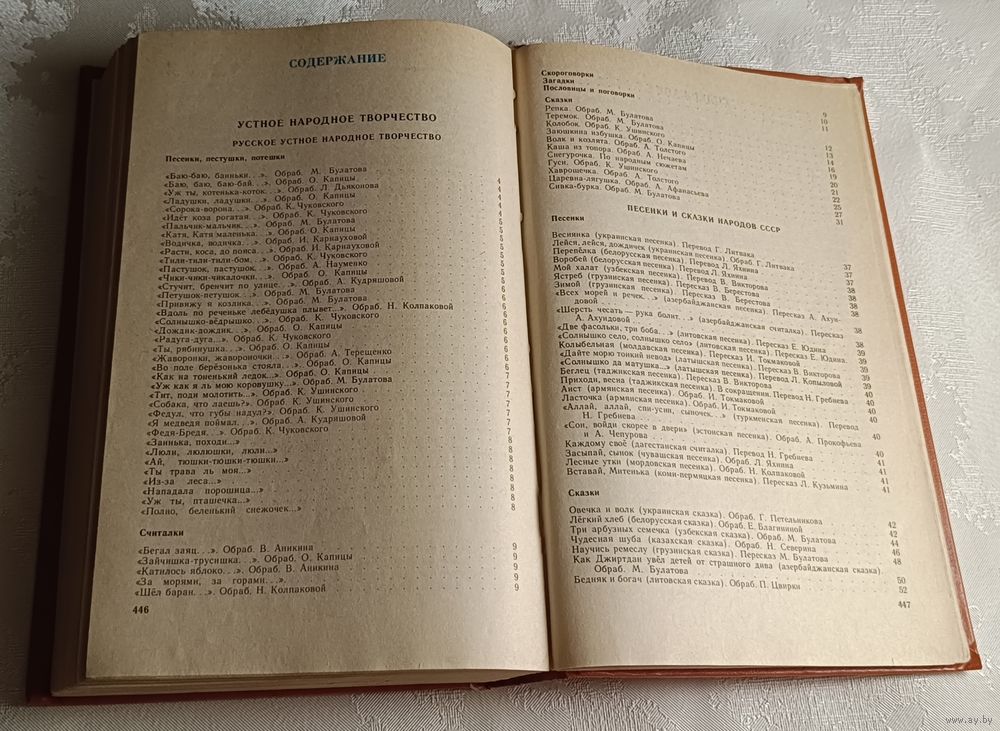 СОДЕРЖАНИЕ
УСТНОЕ НАРОДНОЕ ТВОРЧЕСТВО
РУССКОЕ УСТНОЕ НАРОДНОЕ ТВОРЧЕСТВО
Песенки, пестушки, потешки
«Баю-баю, баиньки. . .». Обраб. М. Булатова
«Баю, баю, баю-бай. . .». Обраб. О. Капицы 4
«Уж ты, котенька-коток. . .». Обраб. Л. Дьяконова 4
«Ладушки, ладушки. . .». Обраб. О. Капицы 4
«Сорока-ворона. . .». Обраб. К. Чуковского 4
«Идёт коза рогатая. . .». Обраб. К. Чуковского 4
«Пальчик-мальчик. . .». Обраб. М. Булатова 5
«Катя, Катя маленька. . .». Обраб. О. Капицы 5
«Водичка, водичка. . .». Обраб. И. Карнауховой 5
«Расти, коса, до пояса. . .». Обраб. И. Карнауховой 5
«Тили-тили-тили-бом. . .». Обраб. К. Чуковского 5
«Пастушок, пастушок. . .». Обраб. А. Науменко 5
«Чики-чики-чикалочки. . .». Обраб. О. Капицы 5
«Стучит, бренчит по улице. . .». Обраб. А. Кудряшовой 6
«Петушок-петушок. . .». Обраб. М. Булатова 6
«Привяжу я козлика. . .». Обраб. М. Булатова 6
«Вдоль по реченьке лебёдушка плывёт. . .». Обраб. Н. Колпаковой 6
«Солнышко-вёдрышко. . .». Обраб. К. Чуковского 6
«Дождик-дождик. . .». Обраб. О. Капицы 6
«Радуга-дуга. . .». Обраб. К. Чуковского 6
«Ты, рябинушка. . .». Обраб. О. Капицы 6
«Жаворонки, жавороночки. . .». Обраб. А. Терещенко 6
«Во поле берёзонька стояла. . .». Обраб. О. Капицы 7
«Как на тоненький ледок. . .». Обраб. О. Капицы 7
«Уж как я ль мою коровушку. . .». Обраб. М. Булатова 7
«Тит, поди молотить. . .». Обраб. К. Ушинского 7
«Собака, что лаешь?». Обраб. К. Ушинского 7
«Федул, что губы надул?». Обраб. К. Ушинского 7
«Я медведя поймал. . .». Обраб. А. Кудряшовой 7
«Федя-Бредя. . .». Обраб. К. Чуковского 7
«Заинька, походи. . .» 8
«Люли, люлюшки, люли. . .» 8
«Ай, тюшки-тюшки-тюшки. . .» 8
«Ты трава ль моя. . .» 8
«Из-за леса. . .» 8
«Нападала порошица. . .» 8
«Уж ты, пташечка. . .» 8
«Полно, беленький снежочек. . .» 8
Считалки
«Бегал заяц. . .». Обраб. В. Аникина 9
«Зайчишка-трусишка. . .». Обраб. О. Капицы 9
«Катилось яблоко. . .». Обраб. В. Аникина 9
«За морями, за горами. . .». 9
«Шёл баран. . .». Обраб. Н. Колпаковой 9
446
Скороговорки
Загадки
Пословицы и поговорки
Сказки 9
Репка. Обраб. М. Булатова 10
Теремок. Обраб. М. Булатова 11
Колобок. Обраб. К. Ушинского
Заюшкина избушка. Обраб. О. Капицы 12
Волк и козлята. Обраб. А. Толстого 13
Каша из топора. Обраб. А. Нечаева 14
Снегурочка. По народным сюжетам 16
Гуси. Обраб. К. Ушинского 19
Хаврошечка. Обраб. А. Толстого 20
Царевна-лягушка. Обраб. А. Афанасьева 21
Сивка-бурка. Обраб. М. Булатова 22
25
27
31
ПЕСЕНКИ И СКАЗКИ НАРОДОВ СССР
Песенки
Веснянка (украинская песенка). Перевод Г. Литвака
Лейся, лейся, дождичек (украинская песенка). Обраб. Г. Литвака
Перепёлка (белорусская песенка). Перевод Л. Яхнина 37
Воробей (белорусская песенка). Перевод Л. Яхнина 37
Мой халат (узбекская песенка). Перевод В. Викторова 38
Ястреб (грузинская песенка). Пересказ В. Берестова 38
Зимой (грузинская песенка). Пересказ В. Берестова 38
«Всех морей и речек. . .» (азербайджанская песенка). Пересказ А. Ахун-
довой 38
«Шерсть чесать — рука болит. . .» (азербайджанская считалка). Пересказ
А. Ахундовой
«Две фасольки, три боба. . .» (литовская песенка). Пересказ Е. Юдина 38
«Солнышко село, солнышко село» (литовская песенка). Пересказ Е. Юдина 39
Колыбельная (молдавская песенка). Пересказ И. Токмаковой 39
«Дайте морю тонкий невод» (латышская песенка). Пересказ В. Викторова 39
«Солнышко да матушка. . .» (латышская песенка). Перевод Л. Копыловой 39
Беглец (таджикская песенка). Пересказ В. Викторова 39
Приходи, весна (таджикская песенка). В сокращения. Перевод Н. Гребнева 40
Аист (армянская песенка). Обраб. И. Токмаковой 40
Ласточка (армянская песенка). Обраб. И. Токмаковой 40
«Аллай, аллай, спи-усни, сыночек. . .» (туркменская песенка). Перевод
Н. Гребнева
«Сон, войди скорее в двери» (эстонская песенка). Обраб. А. Прокофьева 40
и А. Чепурова
Каждому своё (дагестанская считалка). Перевод Н. Гребнева 40
Засыпай, сынок (чувашская песенка). Обраб. Л. Яхнина 41
Лесные утки (мордовская песенка). Обраб. Н. Колпаковой 41
Вставай, Митенька (коми-пермяцкая песенка). Пересказ Л. Кузьмина 41
Сказки
Овечка и волк (украинская сказка). Обраб. Г. Петельникова
Лёгкий хлеб (белорусская сказка). Обраб. Е. Влагининой 42
Три арбузных семечка (узбекская сказка). Обраб. М. Булатова 42
Чудесная шуба (казахская сказка). Обраб. Н. Северина 44
Научись ремеслу (грузинская сказка). Пересказ М. Булатова 46
Как Джиртдан увёл детей от страшного дива (азербайджанская сказка). 48
Обраб. М. Булатова 50
Бедняк и богач (литовская сказка). Обраб. П. Цвирки 52
447
www.ay.by